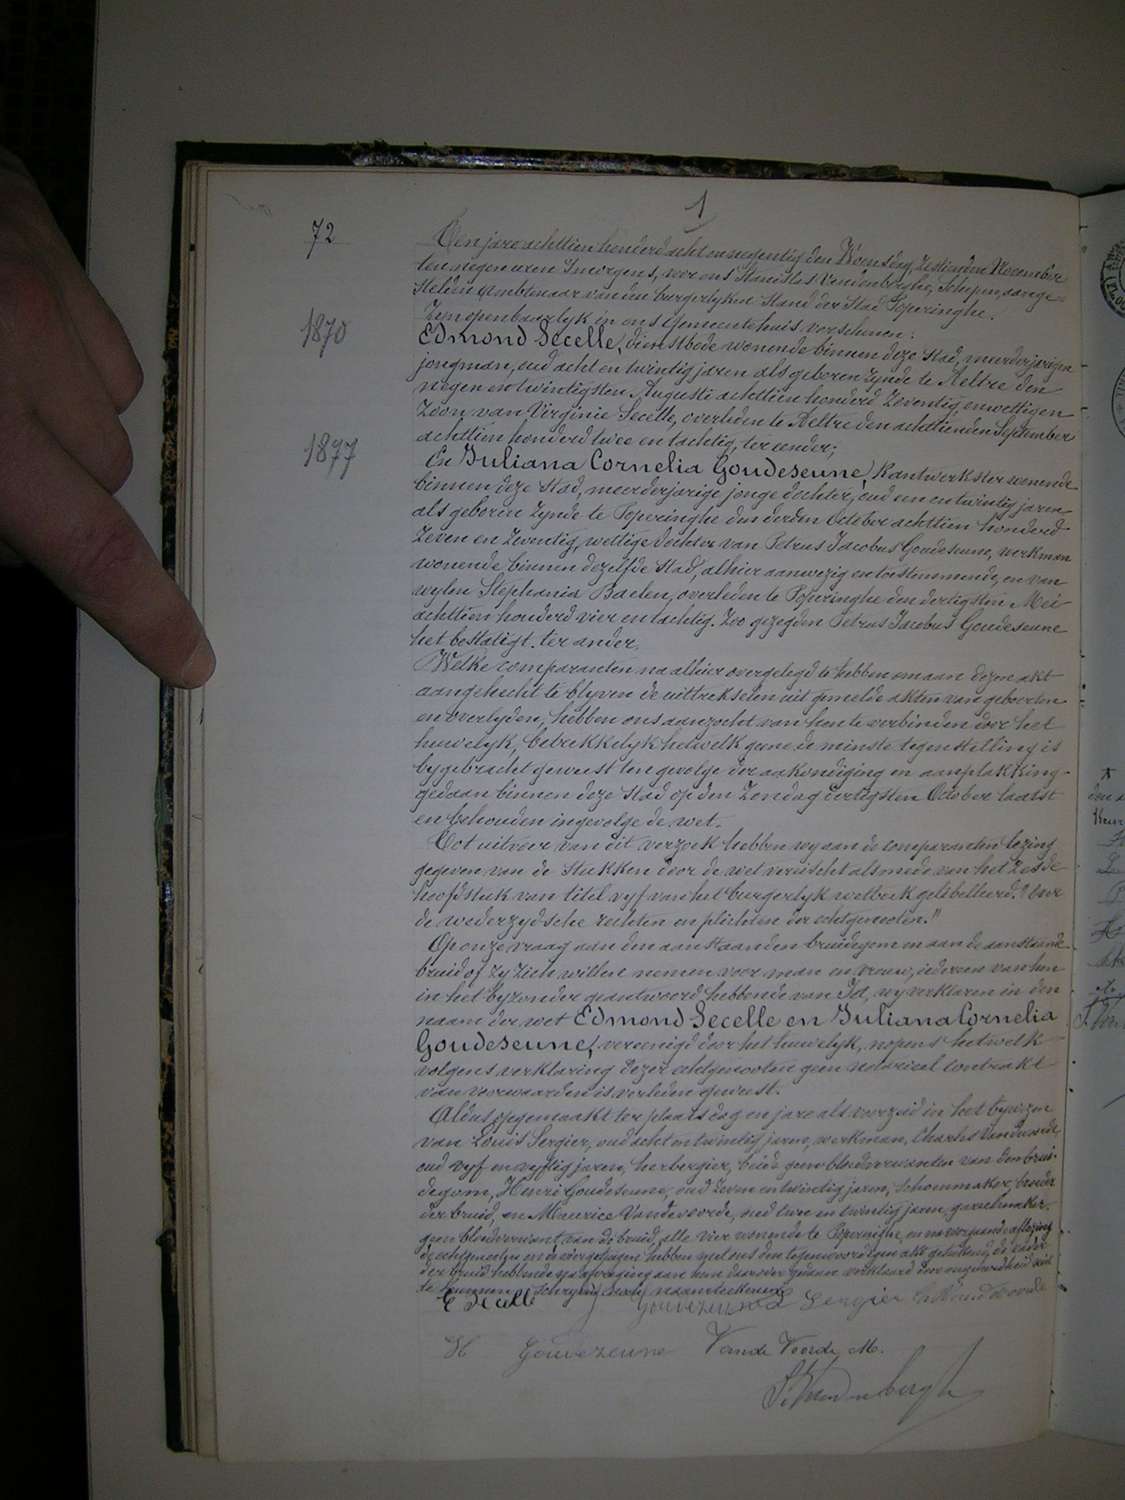 1
72
Den jare achttien honderd acht en negentig den Woensdag Zestienden November
ten negen uren Smorgens, voor ons Stanislas Vandenberghe, Schepen, aange=
stelden Ambtenaar van den burgerlyken Stand der Stad Poperinghe.
Zyn openbaarlyk in ons Gemeentehuis verschenen:
1870
Edmond Secelle, dienstbode wonende binnen deze Stad, meerderjarigen
jongman, oud acht en twintig jaren als geboren zynde te Aeltre den
negen en twintigsten Augusti achttien honderd Zeventig, en wettigen
Zoon van Virginie Secelle, overleden te Aeltre den achttienden September
achttien honderd twee en tachtig, ter eender;
1877
En Juliana Cornelia Goudeseune, Kantwerkster wonende
binnen deze Stad, meerderjarige jonge dochter, oud een en twintig jaren
als geboren zynde te Poperinghe den derden October achttien honderd
Zeven en Zeventig, wettige dochter van Petrus Jacobus Goudeseune, werkman
wonende binnen dezelfde Stad, alhier aanwezig en toestemmende, en van
wylen Stephania Baelen, overleden te Poperinghe den dertigsten Mei
achttien honderd vier en tachtig. Zoo gezegden Petrus Jacobus Goudeseune
het bestatigt. ter ander.
Welke comparanten na alhier overgelegd te hebben om aan dezen akt
aangehecht te blyven de uittrekselen uit gemelde akten van geboorten
en overlyden, hebben ons aanzocht van hen te verbinden door het
huwelyk, betrekkelyk hetwelk geene de minste tegenstelling is
bygebracht geweest ten gevolge der aakondiging en aanplakking
gedaan binnen deze Stad op den Zondag dertigsten October laatst
en behouden ingevolge de wet.
Tot uitvoer van dit verzoek hebben wy aan de comparanten lezing
gegeven van de Stukken door de wet vereischt alsmede van het Zesde
hoofdstuk van titel vyf van het burgerlyk wetboek gelibelleerd: "Over
de wederzydsche rechten en plichten der echtgenooten."
Op onze vraag aan den aanstaanden bruidegom en aan de aanstaande
bruid of zy zich willen nemen voor man en vrouw, iedereen van hun
in het byzonder geantwoord hebbende van Ja, wy verklaren in den
naam der wet Edmond Secelle en Juliana Cornelia
Goudeseune, vereenigd door het huwelyk, nopens hetwelk
volgens verklaring dezer echtgenooten geen notarieel contrakt
van voorwaarden is verleden geweest.
Aldus opgemaakt ter plaats dag en jare als voorzeid in het bywezen
van Louis Sergier, oud acht en twintig jaren, werkman, Charles Vandevoorde,
oud vyf en vyftig jaren, herbergier, beide geene bloedverwanten van den brui-
degom, Henri Goudeseune, oud Zeven en twintig jaren, Schoenmaker, broeder
der bruid, en Maurice Vandevoorde, oud twee en twintig jaren, gareelmaker
geen bloedverwant van de bruid, alle vier wonende te Poperinghe, en na voorgaande aflezing
de echtgenooten en de voorgetuigen hebben met ons den tegenwoordigen akt geteekend, de vader
der bruid hebbende op afvraging aan hem daarover gedaan verklaard door ongeleerdheid niet
te kunnen schryven noch naamteekenen.
E Secelle J Gouvezeune Sergier Ch Vande Voorde
H Gouvezeune Vande Voorde M.
St. Vandenberghe